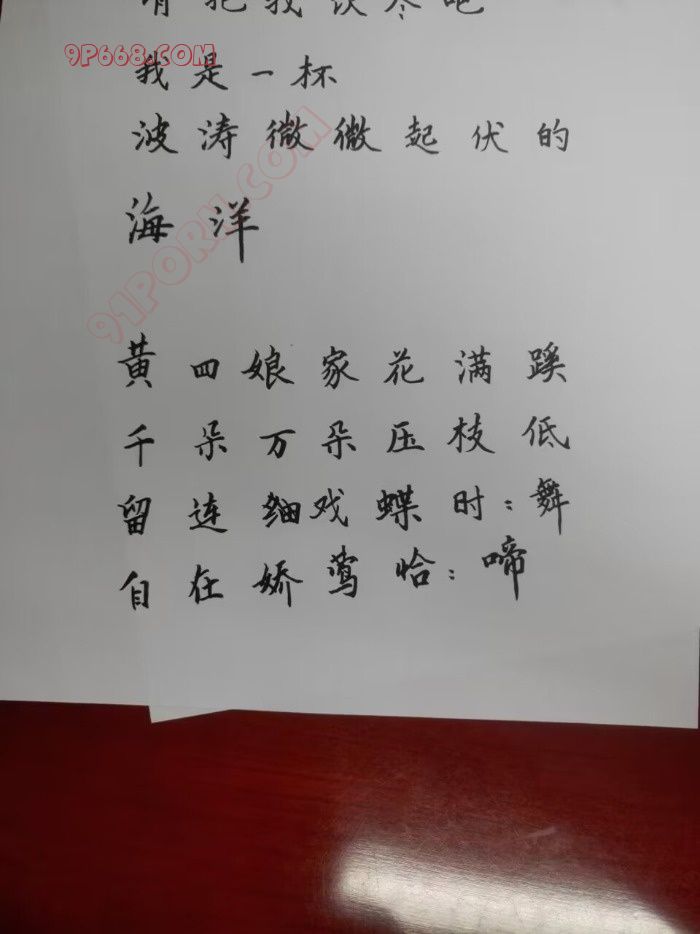 请把我饮尽吧
9P668.COM
我是一杯
波涛微微起伏的
海洋
91PORN.COM
黄四娘家花满蹊
千朵万朵压枝低
留连细戏蝶时:舞
自在娇莺恰:啼